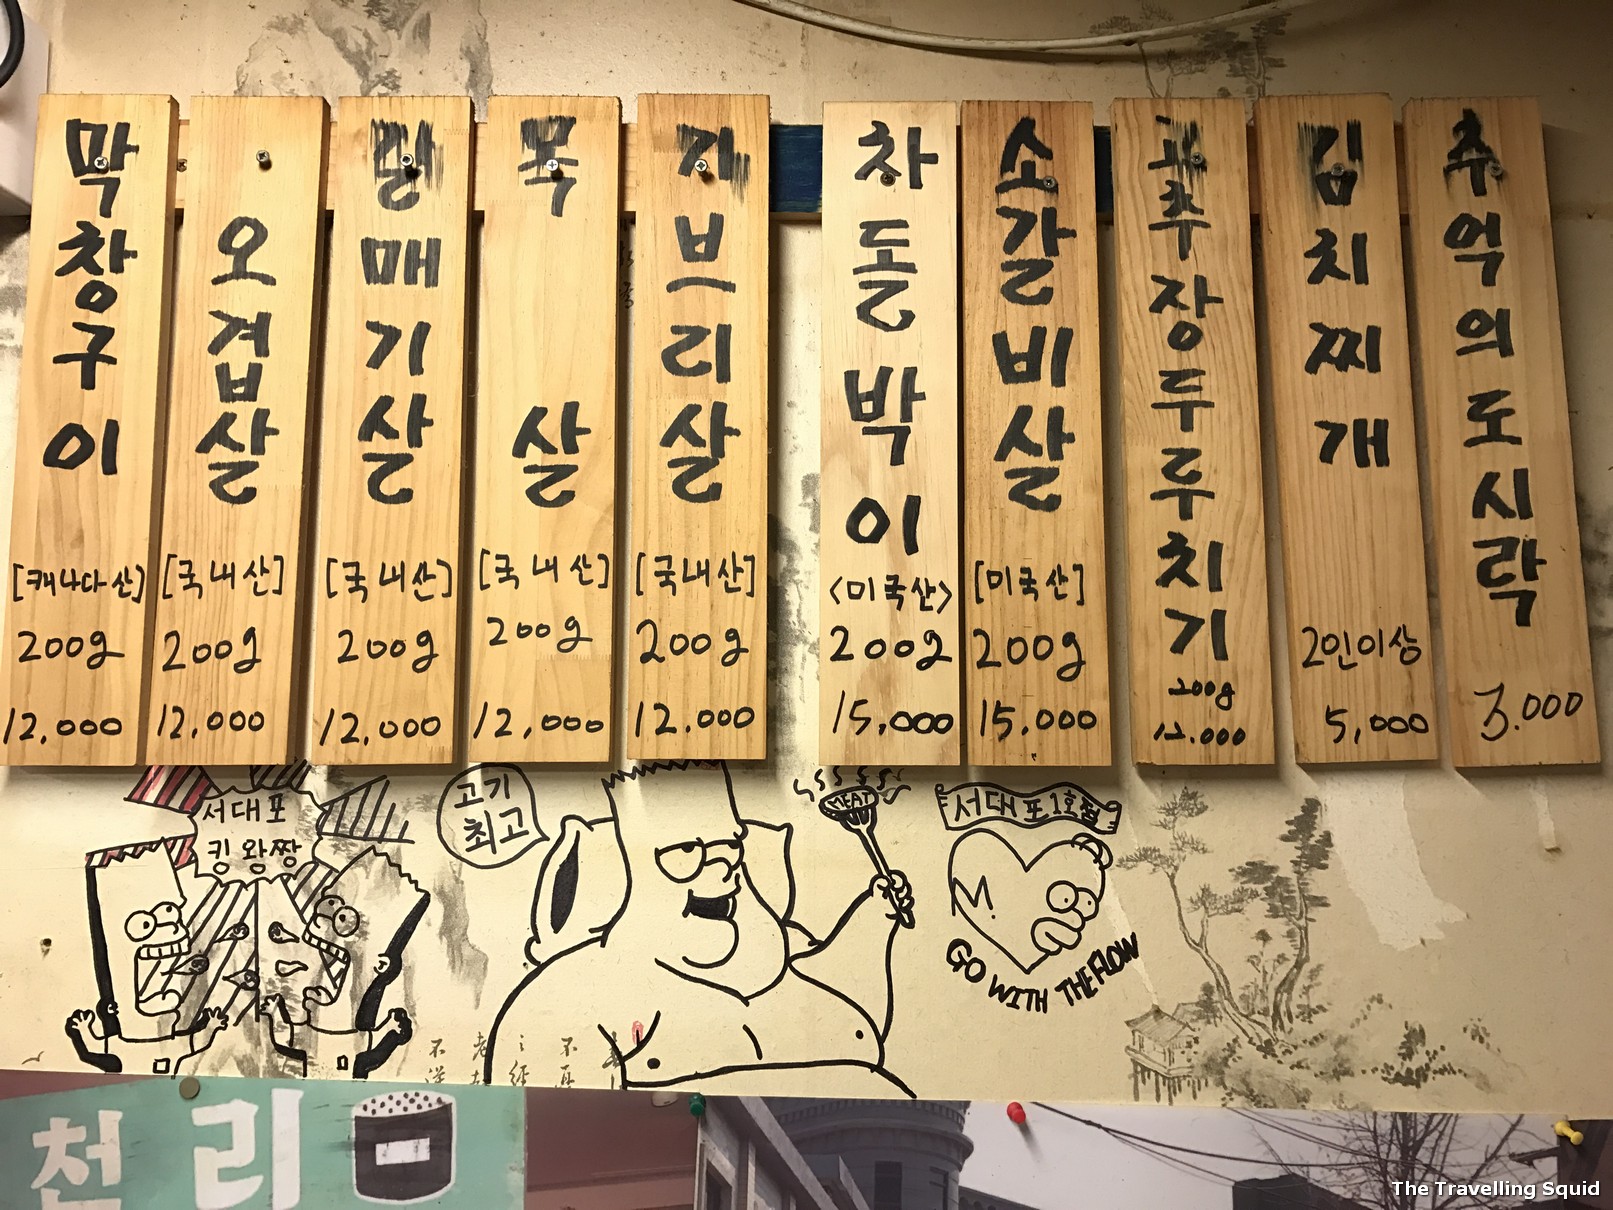 막창구이
[캐나다산]
200g
12.000
오겹살
[국내산]
200g
12,000
갈매기살
[국내산]
200g
12.000
목살
[국내산]
200g
12,000
가브리살
[국내산]
200g
12.000
차돌박이
<미국산>
200g
15,000
소갈비살
[미국산]
200g
15,000
고추장두루치기
200g
12.000
김치찌개
2인이상
5,000
추억의도시락
3.000
서대포
킹왕짱
고기
최고
MEAT
서대포1호점
M.
GO WITH THE FLOW
천리
The Travelling Squid